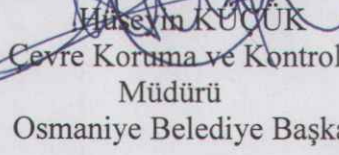 Hüseyin KÜÇÜK
Çevre Koruma ve Kontrol
Müdürü
Osmaniye Belediye Başka